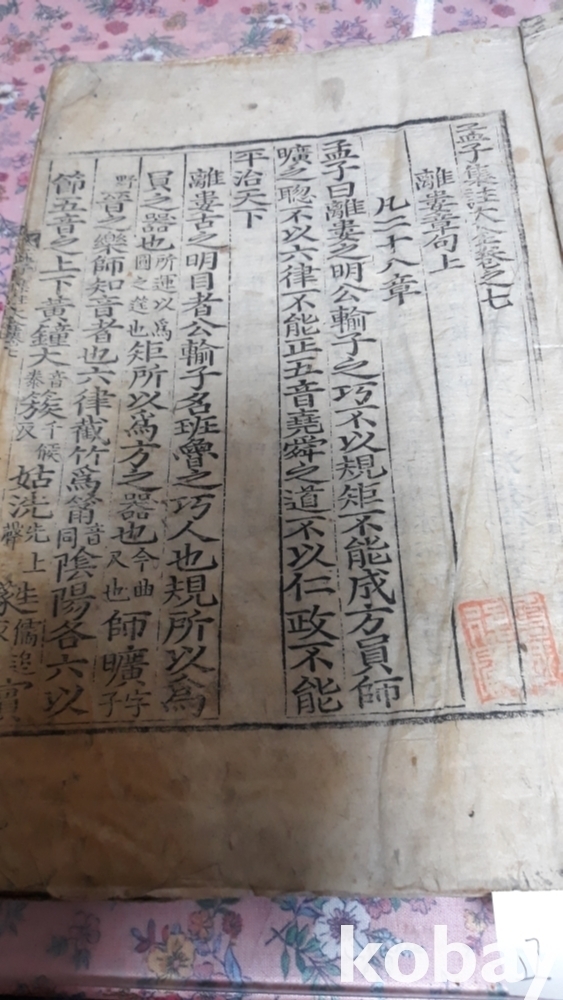 孟子集註大全卷之七
離婁章句上
凡二十八章
孟子曰離婁之明公輸子之巧不以規矩不能成方員師
曠之聰不以六律不能正五音堯舜之道不以仁政不能
平治天下
離婁古之明目者公輸子名班魯之巧人也規所以爲
員之器也所運以爲圓之筳也矩所以爲方之器也今曲尺也師曠字子
野晉之樂師知音者也六律截竹爲筩音同陰陽各六以
節五音之上下黃鐘大音泰簇千候反姑洗先上聲蕤儒追反賓
kobay